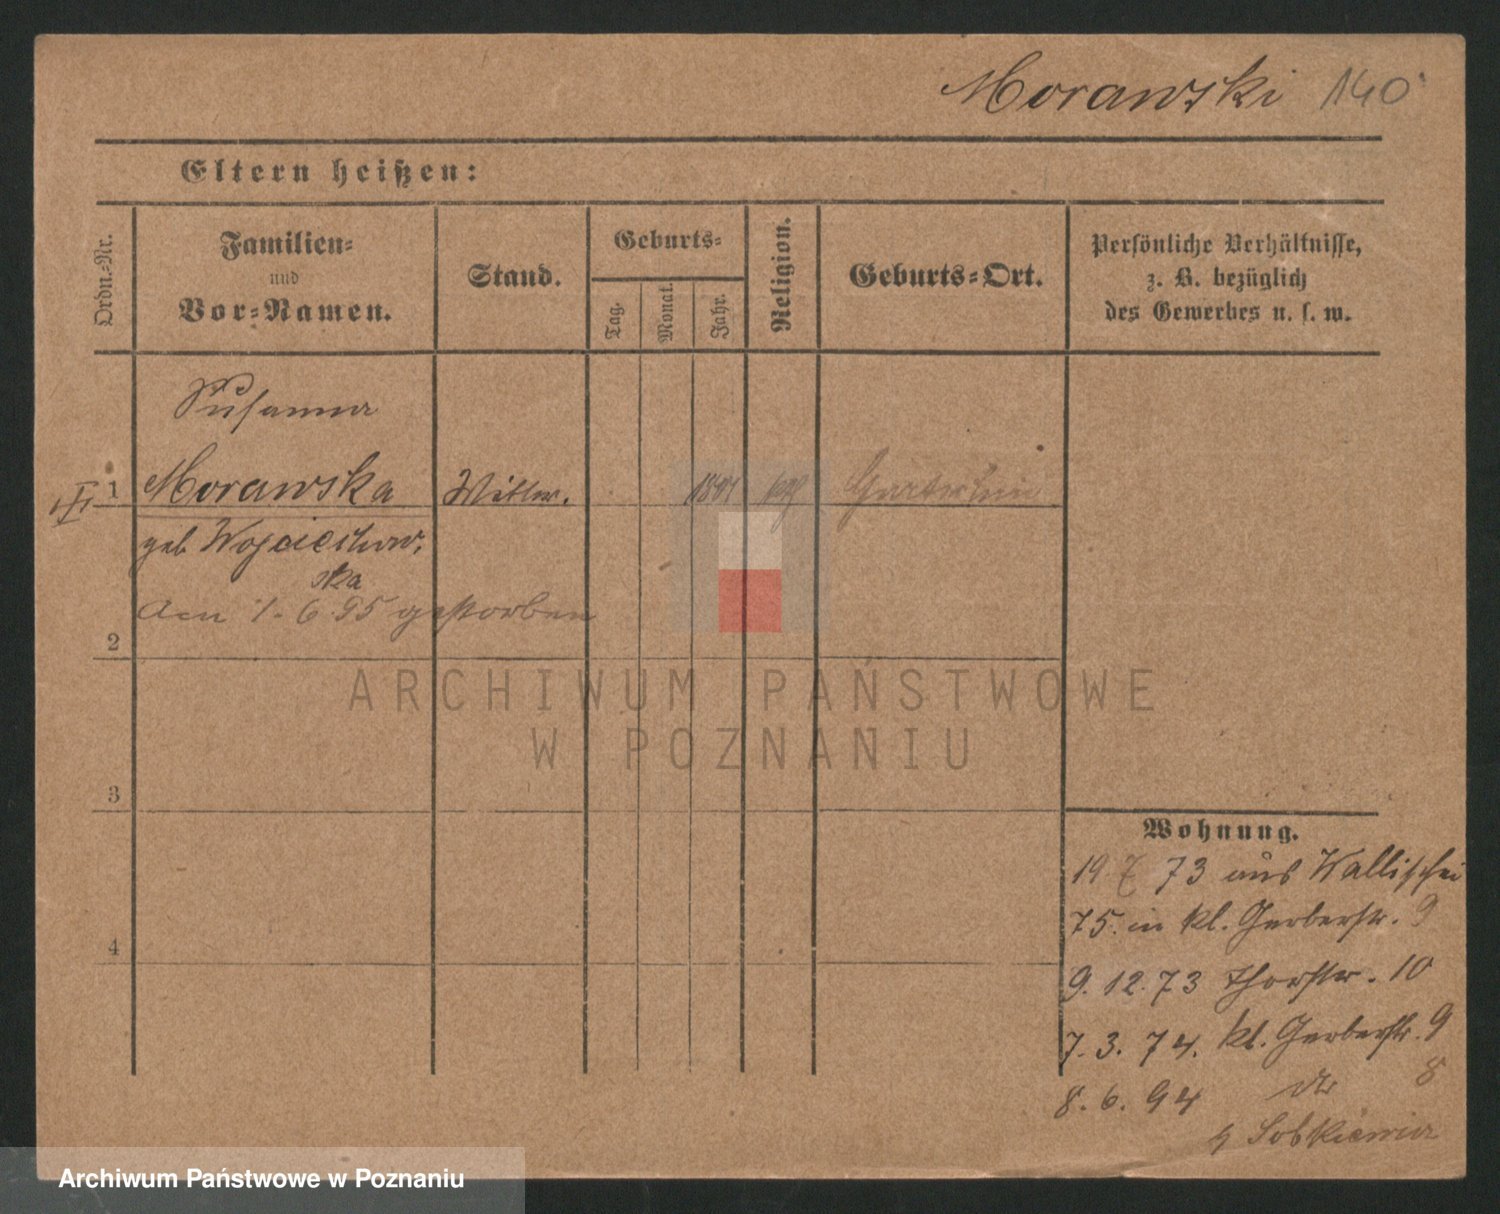 Morawski 140
Eltern heißen:
Ordn.-Nr.
Familien-
und
Vor-Namen.
Stand.
Geburts-
Tag.
Monat.
Jahr.
Religion.
Geburts-Ort.
Persönliche Verhältnisse,
z. B. bezüglich
des Gewerbes u. s. w.
Susanna
1 Morawska Wittw.
geb Wojciechow,
ska
Am 1. 6. 95 gestorben
2
3
4
Wohnung.
19 7 73 aus Wallischei
75. in kl. Gerberstr. 9
9. 12. 73 Thorstr. 10
7. 3. 74. kl. Gerberstr. 9
8. 6. 94 do 8
Sobkiewicz
ARCHIWUM PAŃSTWOWE
W POZNANIU
Archiwum Państwowe w Poznaniu